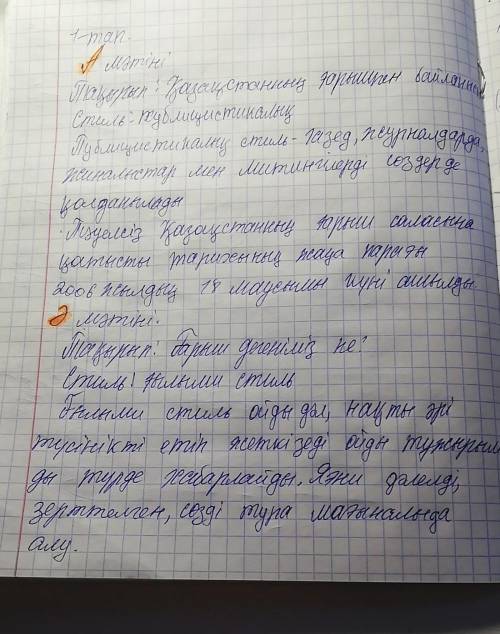 1-тап.
А мәтіні
Тақырып: Қазақстанның ғарышпен байланысы
Стиль: Публицистикалық
Публицистикалық стиль - газед, журналдарда,
жиналыстар мен митингілерді сөздерде
қолданылады
Тәуелсіз Қазақстанның ғарыш саласына
қатысты тарихының жаңа парағы
2006 жылдың 18 маусымы күні ашылды
Ә мәтіні.
Тақырып: Ғарыш дегеніміз не?
Стиль: ғылыми стиль
Ғылыми стиль ойды дәл, нақты әрі
түсінікті етіп жеткізеді ойды тұжырым
ды түрде хабарлайды. Яғни дәлелді,
зерттелген, сөзді тура мағыналыда
алу.